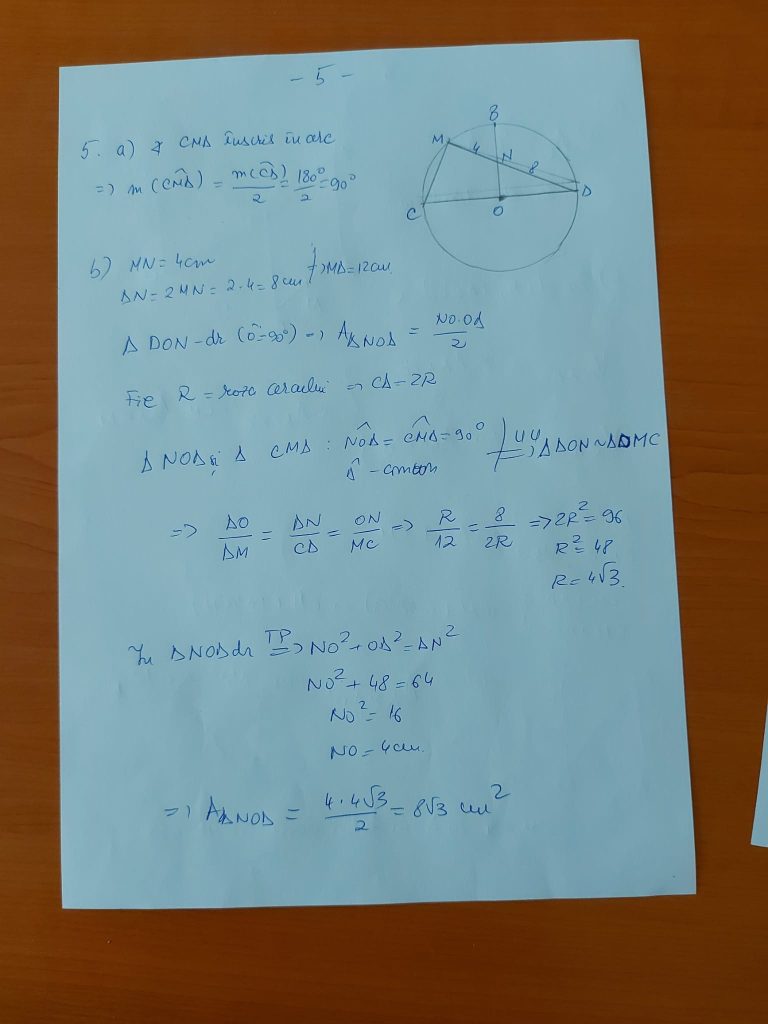 - 5 -
5. a) ∢ CMD înscris în arc
=> m(CMD) = m(CD)/2 = 180°/2 = 90°
B
M
4
N
8
D
C
O
b) MN = 4cm
DN = 2MN = 2·4 = 8cm => MD = 12cm.
Δ DON - dr (Ô = 90°) => A ΔNOD = NO·OD/2
Fie R = raza cercului => CD = 2R
Δ NOD și Δ CMD : NÔD = CMD = 90°
D̂ - comun
UU => ΔDON ~ ΔDMC
=> DO/DM = DN/CD = ON/MC => R/12 = 8/2R => 2R² = 96
R² = 48
R = 4√3.
În ΔNOD dr TP => NO² + OD² = DN²
NO² + 48 = 64
NO² = 16
NO = 4cm.
=> A ΔNOD = 4·4√3/2 = 8√3 cm²